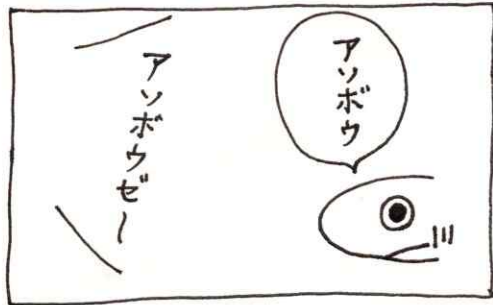 アソボウ
アソボウゼ～